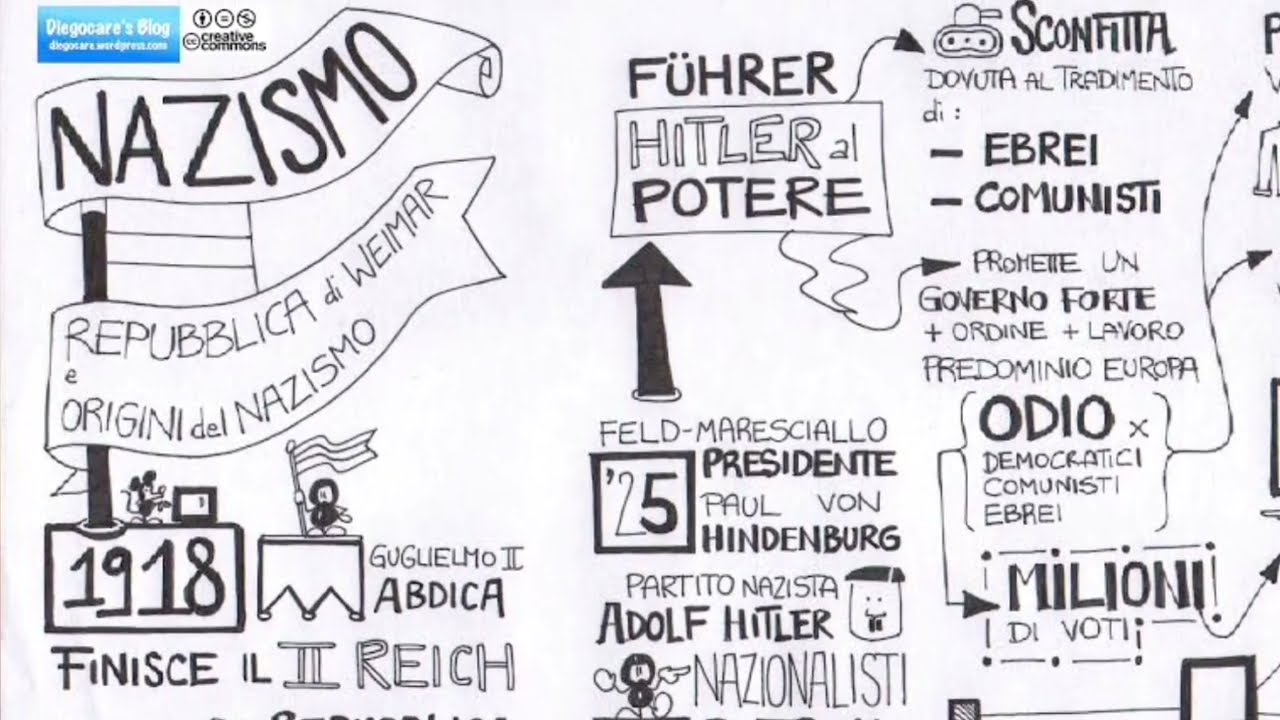 Diegocare's Blog
diegocare.wordpress.com
cc creative
commons
NAZISMO
REPUBBLICA di WEIMAR
e
ORIGINI del NAZISMO
1918
GUGLIELMO II
ABDICA
FINISCE IL II REICH
REPUBBLICA
FÜHRER
HITLER al
POTERE
FELD-MARESCIALLO
'25
PRESIDENTE
PAUL VON
HINDENBURG
PARTITO NAZISTA
ADOLF HITLER
NAZIONALISTI
SCONFITTA
DOVUTA AL TRADIMENTO
di :
- EBREI
- COMUNISTI
PROMETTE UN
GOVERNO FORTE
+ ORDINE + LAVORO
PREDOMINIO EUROPA
ODIO x
DEMOCRATICI
COMUNISTI
EBREI
MILIONI
DI VOTI